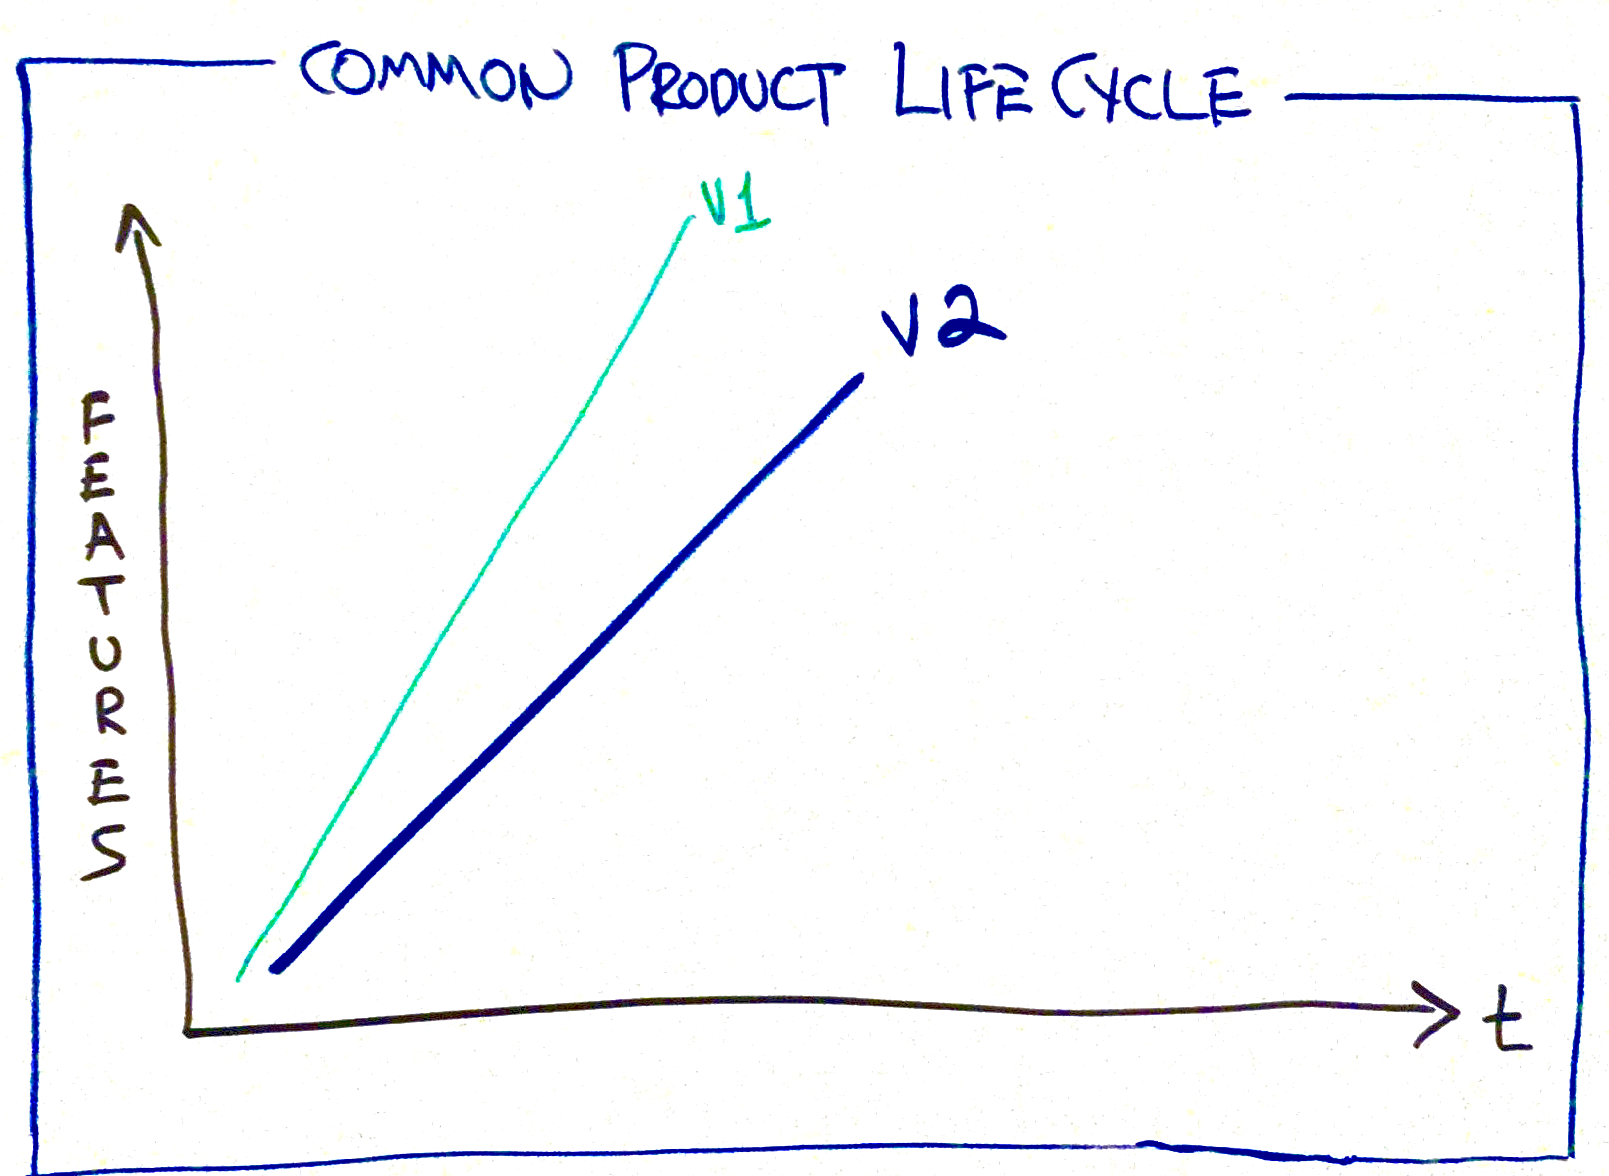 COMMON PRODUCT LIFE CYCLE
V1
V2
FEATURES
t